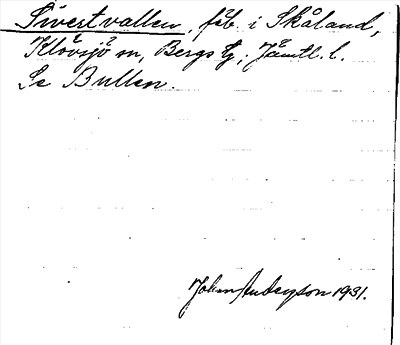 Sivertvallen, fäb. i Skåland,
Klövsjö sn, Bergs tg, Jämtl. l.
Se Bullen.
Johan Anderzson 1931.